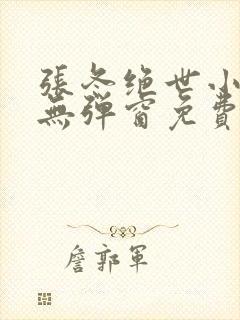 張冬绝世小
無彈窗免費
詹郭軍